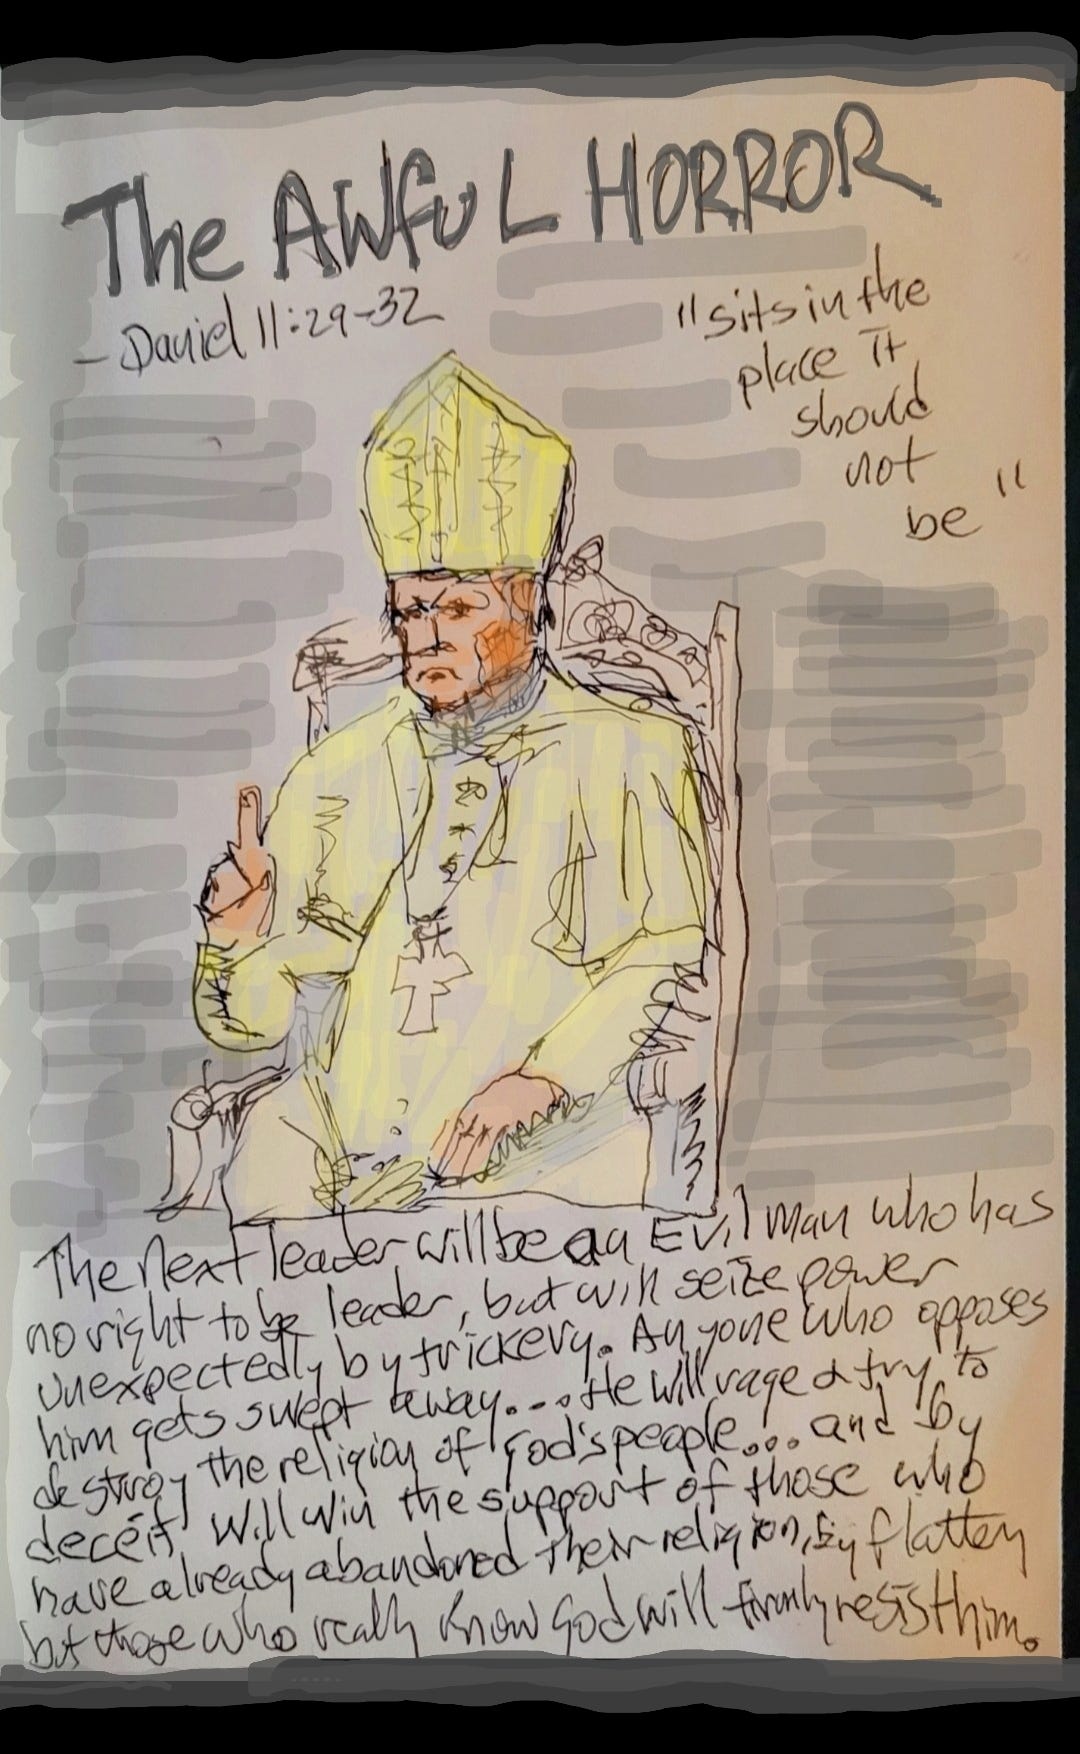 The AWfuL HORROR
- Daniel 11:29-32
"sits in the
place it
should
not
be"
The Next leader will be an Evil man who has
no right to be leader, but will seize power
unexpectedly by trickery. Anyone who opposes
him gets swept away.... He will rage & try to
destroy the religion of God's people... and by
deceit will win the support of those who
have already abandoned their religion, by flattery
but those who really know God will firmly resist him.